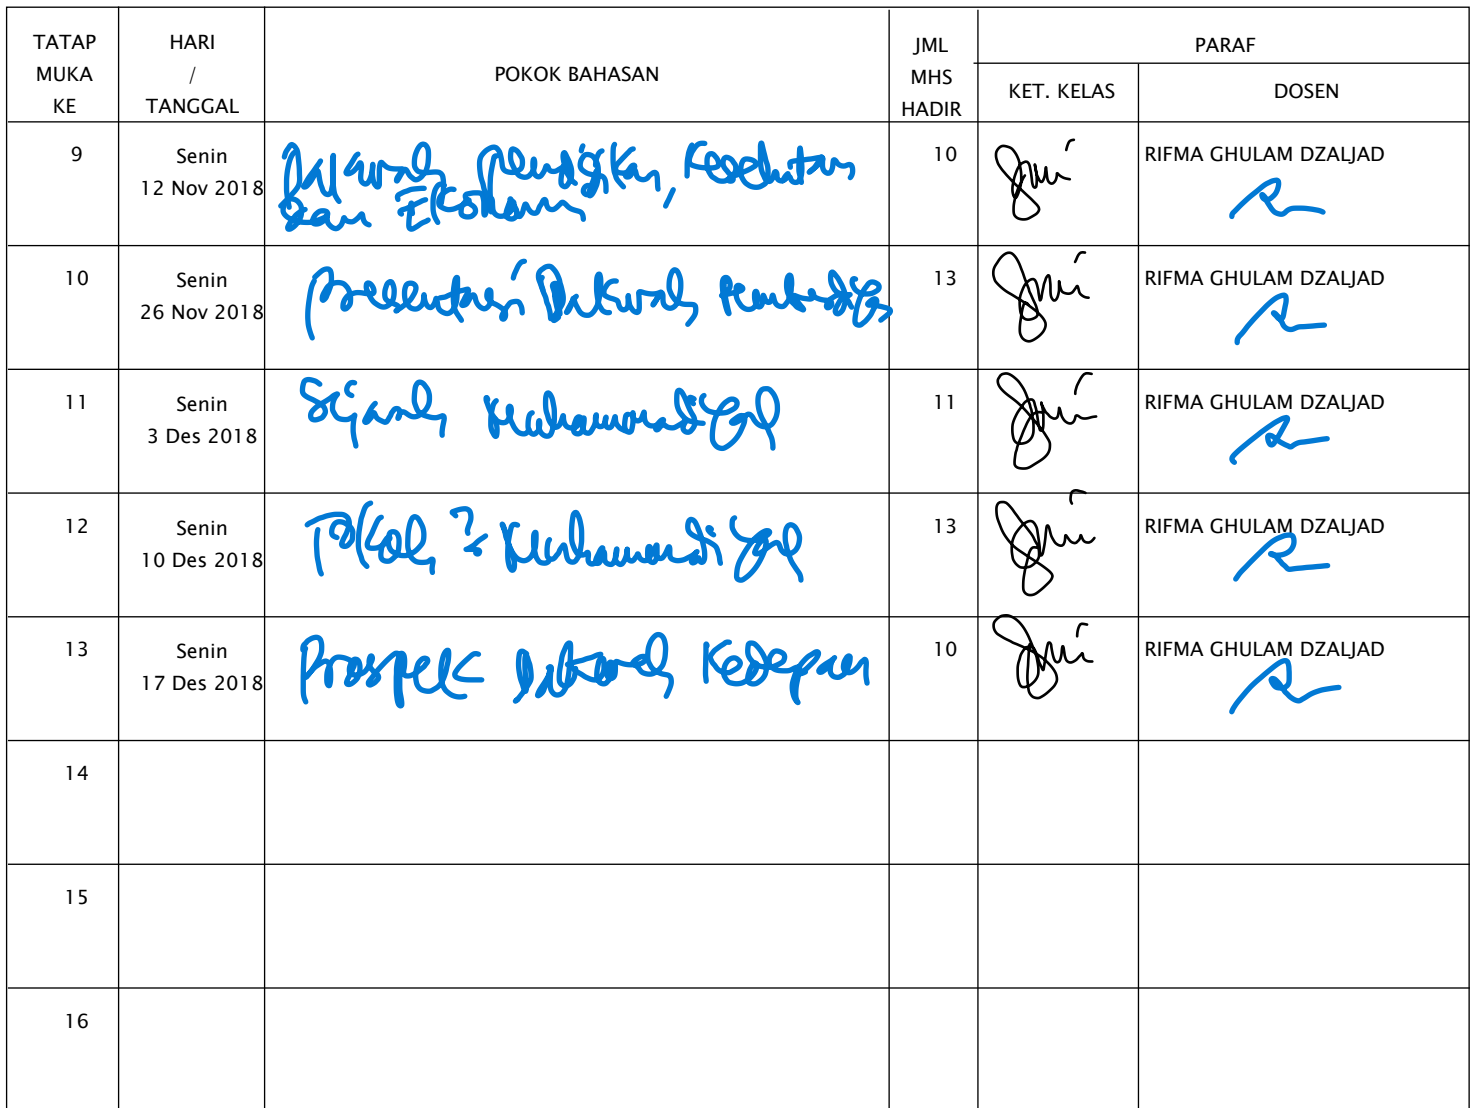 TATAP MUKA KE
HARI / TANGGAL
POKOK BAHASAN
JML MHS HADIR
PARAF
KET. KELAS
DOSEN
9 Senin 12 Nov 2018 Dakwah Pendidikan, Kesehatan 10 RIFMA GHULAM DZALJAD
dan Ekonomi
10 Senin 26 Nov 2018 Presentasi Dakwah 13 RIFMA GHULAM DZALJAD
11 Senin 3 Des 2018 Sejarah Muhammadiyah 11 RIFMA GHULAM DZALJAD
12 Senin 10 Des 2018 Tokoh Muhammadiyah 13 RIFMA GHULAM DZALJAD
13 Senin 17 Des 2018 Prospek Dakwah Kedepan 10 RIFMA GHULAM DZALJAD
14
15
16